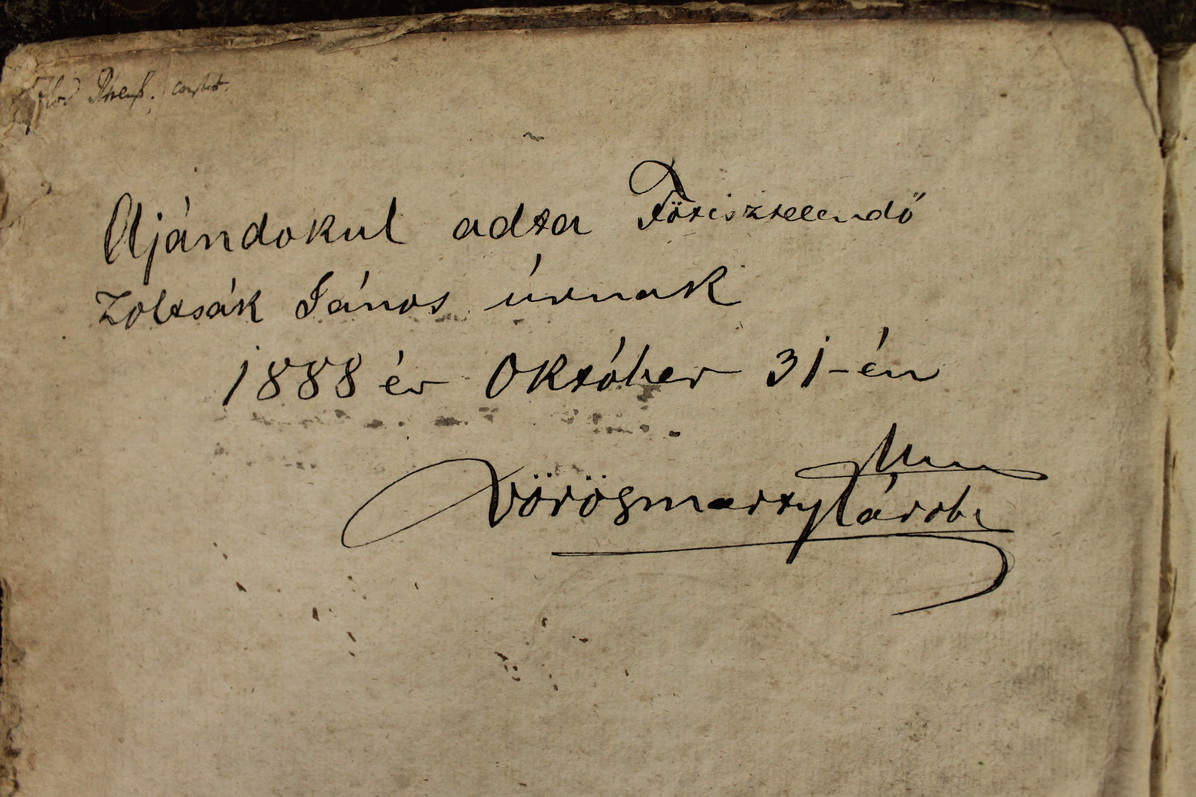 Ajándokul adta Főtisztelendő
Zoltsák János úrnak
1888 év Október 31-én
Vörösmarty